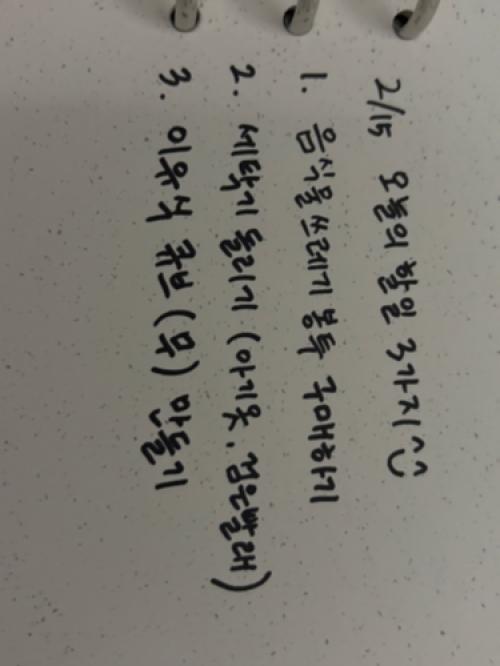 2/15 오늘의 할일 3가지 ^^
1. 음식물 쓰레기 봉투 구매하기
2. 세탁기 돌리기 (아기옷, 검은빨래)
3. 이유식 큐브 (무) 만들기